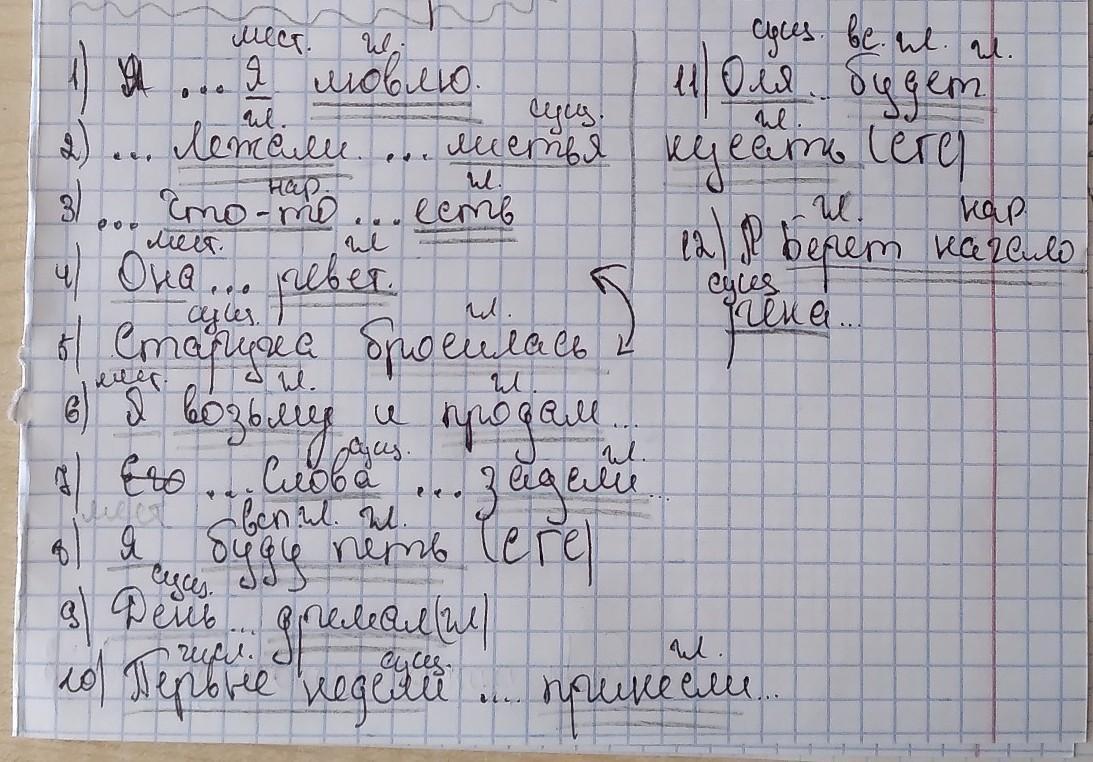 мест. гл.
1) ... Я ловлю.
гл. сущ.
2) ... Летели ... листья
нар. гл.
3) ... Что-то ... есть
мест. гл
4) Она ... ревет.
сущ. гл.
5) Старуха бросилась
мест. гл. гл.
6) Я возьму и продам...
сущ. гл.
7) Его ... Слова ... задели...
мест всп гл. гл.
8) Я буду петь (СГС)
сущ.
9) День ... дремал (гл)
числ. сущ. гл.
10) Первые недели .... принесли...
сущ. вс. гл. гл.
11) Оля .. будет
гл.
кусать (СГС)
гл. нар
12) берет начало
сущ
река...